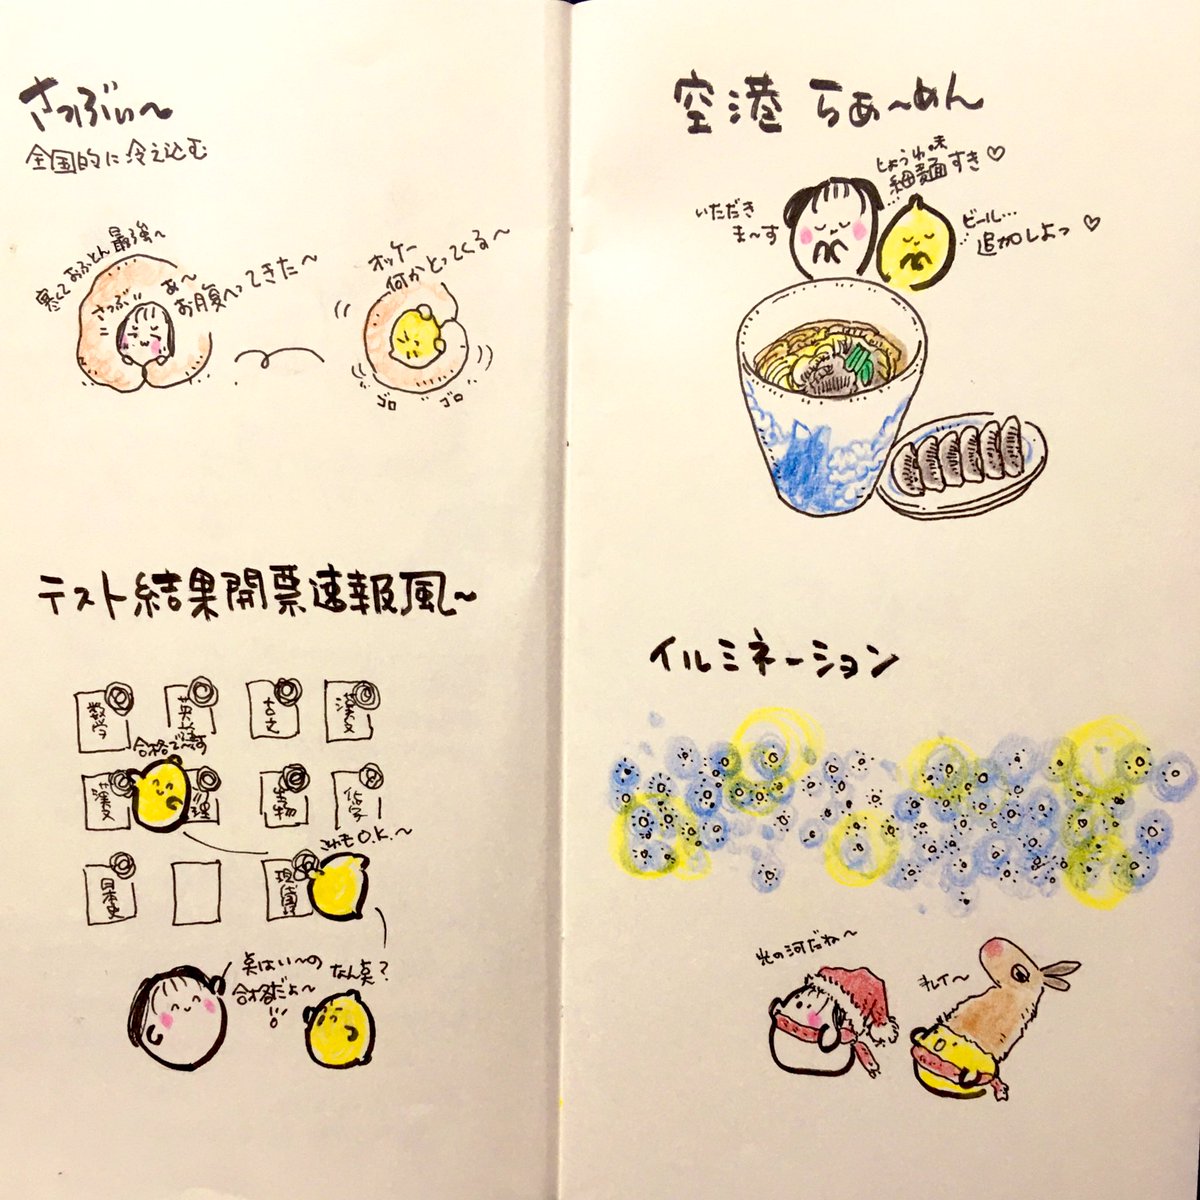 さっぶぃ〜
全国的に冷え込む
寒くておふとん最強〜
さっぶ
あ〜
お腹へってきた〜
オッケー
何かとってくる〜
ゴロ
ゴロ
テスト結果開票速報風〜
数学
英語
古文
漢文
合格で〜す
漢文
理
物
化学
これもO.K.〜
日本史
現国
点はい〜の
合格だよ〜
なん点？
空港らぁ〜めん
いただき
ま〜す
しょうゆ味
細麺すき♡
ビール…
追加しよっ♡
イルミネーション
光の河だね〜
キレイ〜